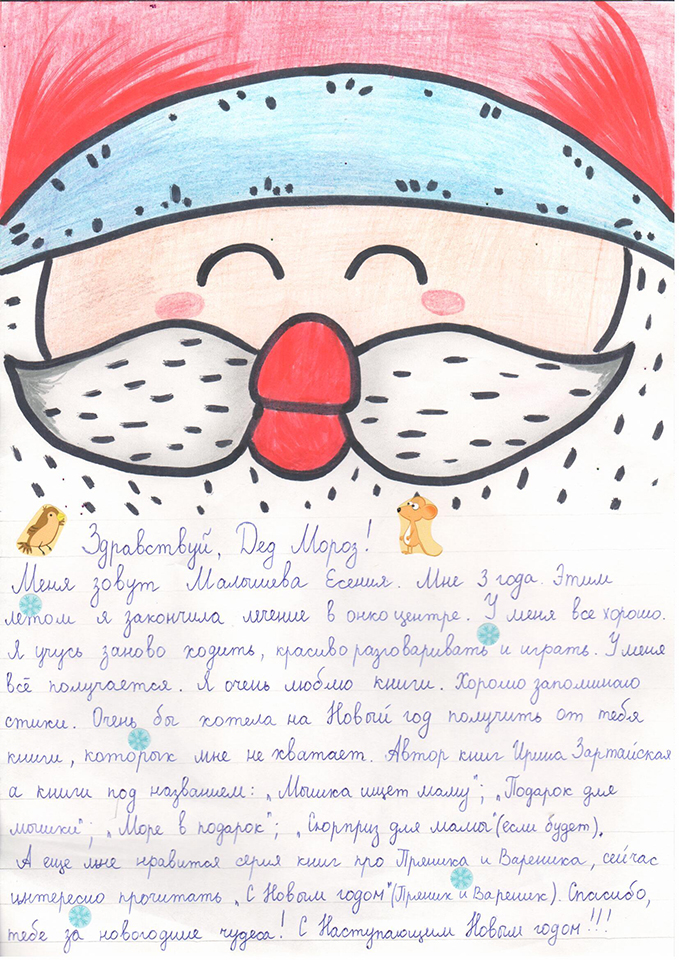 Здравствуй, Дед Мороз!
Меня зовут Малышева Есения. Мне 3 года. Этим
летом я закончила лечение в онкоцентре. У меня все хорошо.
Я учусь заново ходить, красиво разговаривать и играть. У меня
всё получается. Я очень люблю книги. Хорошо запоминаю
стихи. Очень бы хотела на Новый год получить от тебя
книги, которых мне не хватает. Автор книг Ирина Зартайская
а книги под названием: „Мышка ищет маму"; „Подарок для
мышки"; „Море в подарок"; „Сюрприз для мамы" (если будет).
А еще мне нравится серия книг про Пряника и Вареника, сейчас
интересно прочитать „С Новым годом" (Пряник и Вареник). Спасибо,
тебе за новогодние чудеса! С Наступающим Новым годом!!!